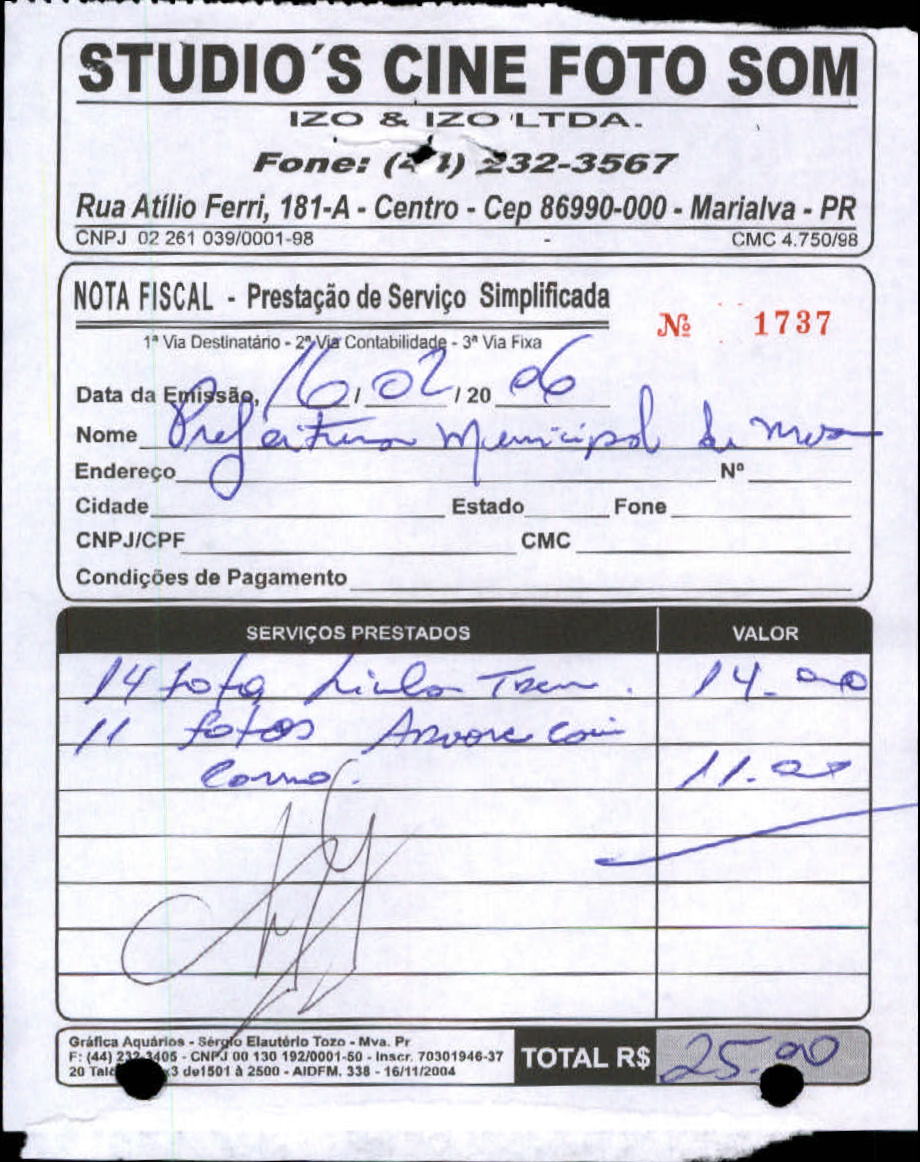 STUDIO´S CINE FOTO SOM
IZO & IZO LTDA.
Fone: (44) 232-3567
Rua Atílio Ferri, 181-A - Centro - Cep 86990-000 - Marialva - PR
CNPJ 02 261 039/0001-98 - CMC 4.750/98
NOTA FISCAL - Prestação de Serviço Simplificada
Nº 1737
1ª Via Destinatário - 2ª Via Contabilidade - 3ª Via Fixa
Data da Emissão, 16 / 02 / 20 06
Nome Prefeitura Municipal de Mva
Endereço Nº
Cidade Estado Fone
CNPJ/CPF CMC
Condições de Pagamento
SERVIÇOS PRESTADOS VALOR
14 foto Linha Trem. 14.00
11 fotos Arvore
11.00
Gráfica Aquários - Sérgio Elautério Tozo - Mva. Pr
F: (44) 232-3405 - CNPJ 00 130 192/0001-50 - Inscr. 70301946-37
20 x3 de1501 à 2500 - AIDFM. 338 - 16/11/2004
TOTAL R$ 25.00